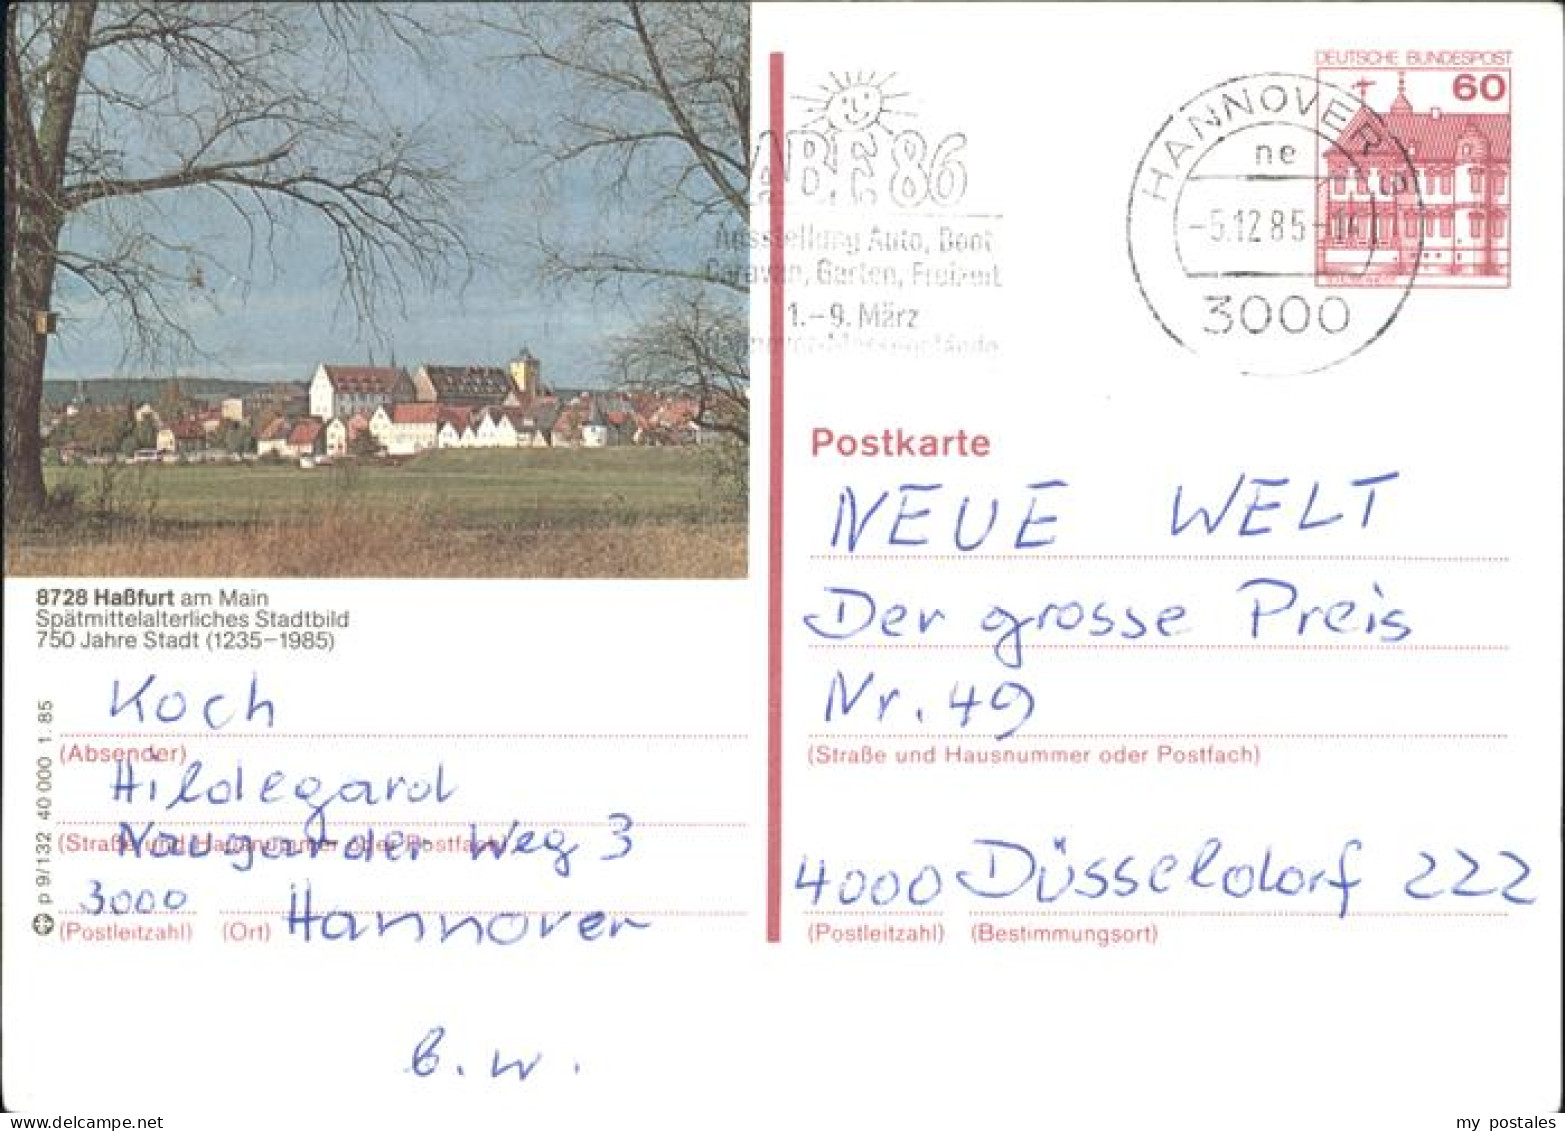 8728 Haßfurt am Main
Spätmittelalterliches Stadtbild
750 Jahre Stadt (1235–1985)
Koch
(Absender)
Hildegard
Naugarder Weg 3
(Straße und Hausnummer oder Postfach)
3000 Hannover
(Postleitzahl) (Ort)
p 9/132 40 000 1.85
b. w.
A.B.F. 86
Ausstellung Auto, Boot
Caravan, Garten, Freizeit
1.–9. März
Hannover-Messegelände
HANNOVER
ne
-5.12.85-
3000
DEUTSCHE BUNDESPOST
60
Postkarte
NEUE WELT
Der grosse Preis
Nr. 49
(Straße und Hausnummer oder Postfach)
4000 Düsseldorf 222
(Postleitzahl) (Bestimmungsort)
my postales